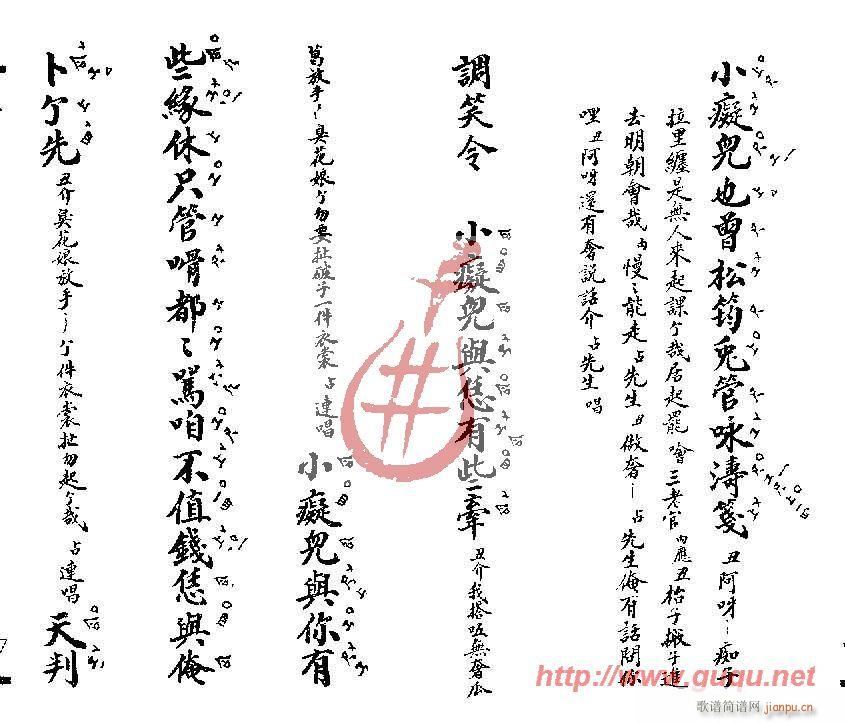 小癡兒也曾松筠兔管咏濤箋 丑阿呀〻痴子
拉里纏是無人來起課个哉居起罷噲三老官内應丑枱子搬子進
去明朝會哉内慢〻能走占先生丑做奢〻占先生俺有話問你
哩丑阿呀還有奢説話介占先生唱
調笑令 小癡兒與恁有些牽 丑介我搭㕶無奢瓜
葛放手〻臭花娘个勿要扯破子一件衣裳占連唱 小癡兒與你有
些緣休只管嘚都〻罵咱不值錢恁與俺
卜个先 丑介臭花娘放手〻个件衣裳扯勿起个哉占連唱 天判
http://www.guqu.net
歌谱简谱网
jianpu.cn